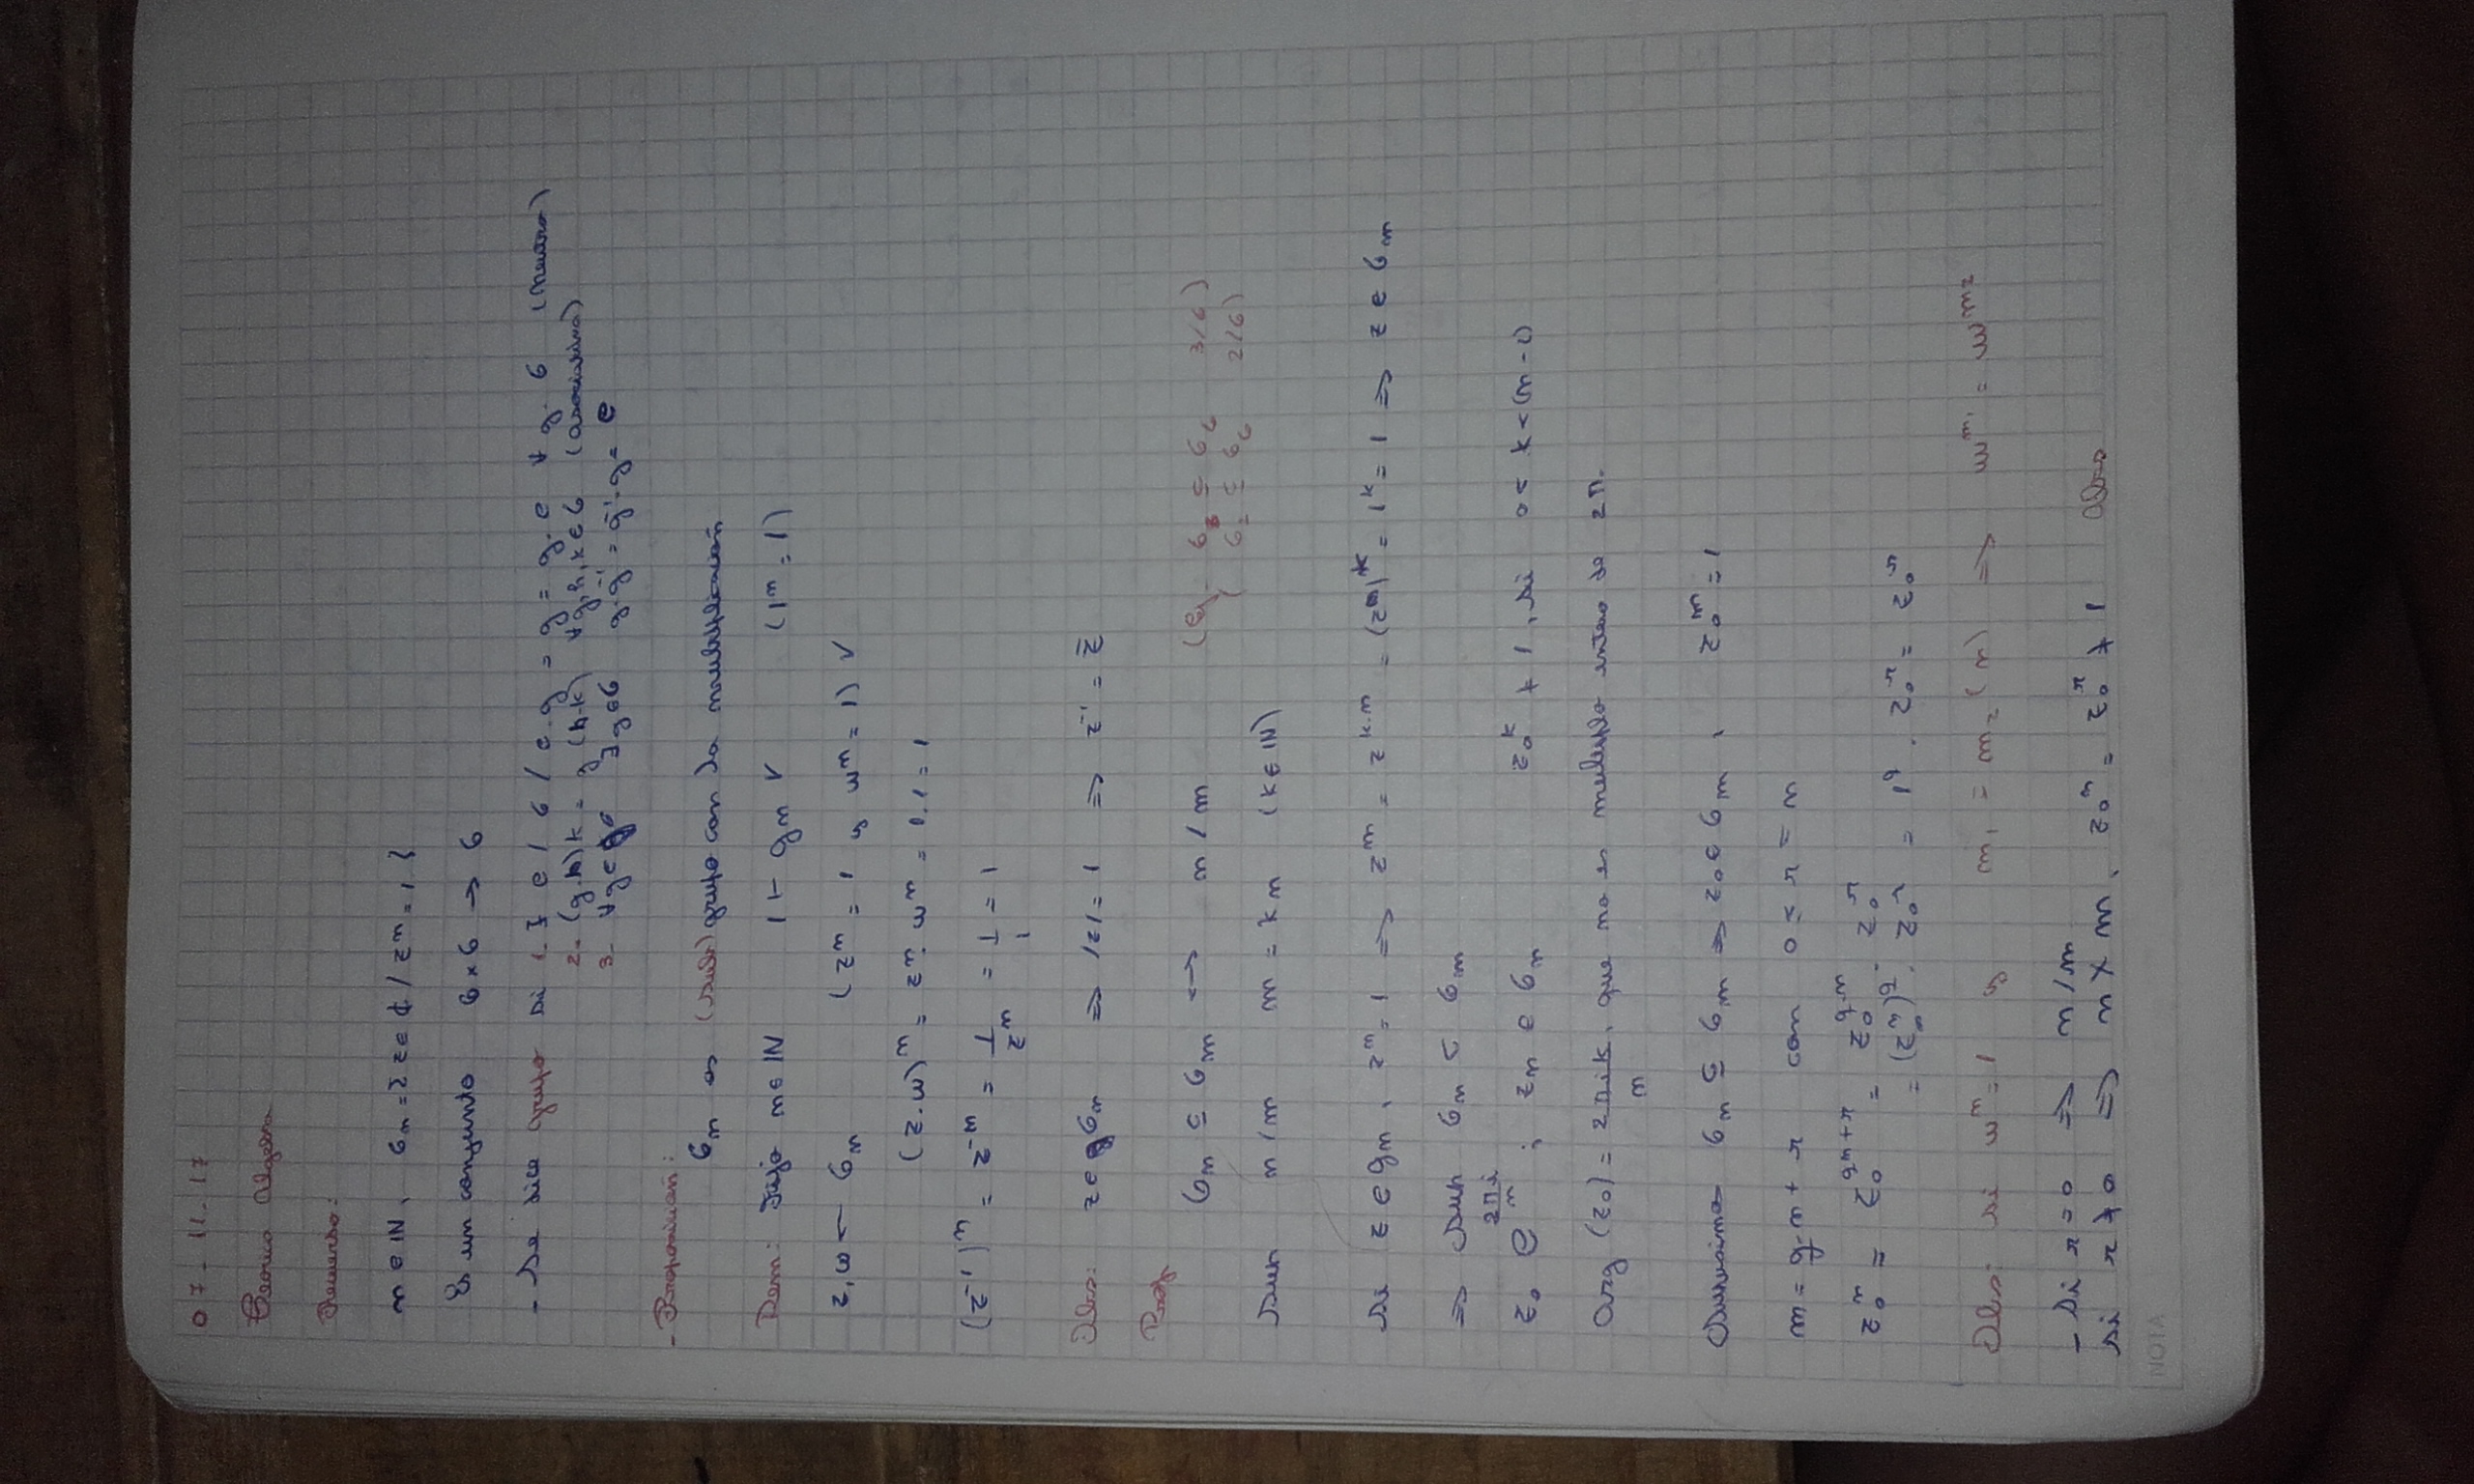 07-11-17
Teorica Algebra
Recuerdo:
n ∈ IN, G_n = { z ∈ ₵ / z^n = 1 }
Es un conjunto G × G → G
- Se dice grupo si 1- ∃ e / G / e.g = g = g.e ∀ g. G (neutro)
2- (g.h)k = g(h.k) ∀ g,h,k ∈ G (asociativa)
3- ∀ g ∈ ∃ g ∈ G g.g^-1 = g^-1.g = e
- Proposicion:
G_n es (sub) grupo con la multiplicacion
Dem: Fijo n ∈ IN 1 ⊢ g_n ✓ (1^n = 1)
z,w ← G_n (z^n = 1 y w^n = 1) ✓
(z.w)^n = z^n. w^n = 1.1 = 1
(z^-1)^n = z^-n = 1/z^n = 1/1 = 1
Obs: z ∈ G_n ⇒ /z/ = 1 ⇒ z^-1 = z̄
Prop
G_n ⊆ G_m ↔ n / m (Ej- G_3 ⊆ G_6 3/6)
( G_2 ⊆ G_6 2/6)
Sup n / m m = k n (k ∈ IN)
Si z ∈ g_n, z^n = 1 ⇒ z^m = z^k.n = (z^n)^k = 1^k = 1 ⇒ z ∈ G_m
⇒ Sup G_n ⊂ G_m
z_0 e^(2πi/n) ; z_n ∈ G_n z_0^k ≠ 1, si 0 < k < (n-1)
Arg (z_0) = 2πik/n, que no es multiplo entero de 2π.
Supusimos G_n ⊆ G_m ⇒ z_0 ∈ G_m, z_0^m = 1
m = q.n + r con 0 ≤ r = n
z_0^m = z_0^(qn+r) = z_0^(q.n) . z_0^r
= (z_0^n)^q . z_0^r = 1^q . z_0^r = z_0^r
Obs: si w^n = 1 y m_1 ≡ m_2 (n) ⇒ w^m1 = w^m2
- Si r = 0 ⇒ n / m
Si r ≠ 0 ⇒ n ∤ m, z_0^m = z_0^r ≠ 1 Abs
NOTA